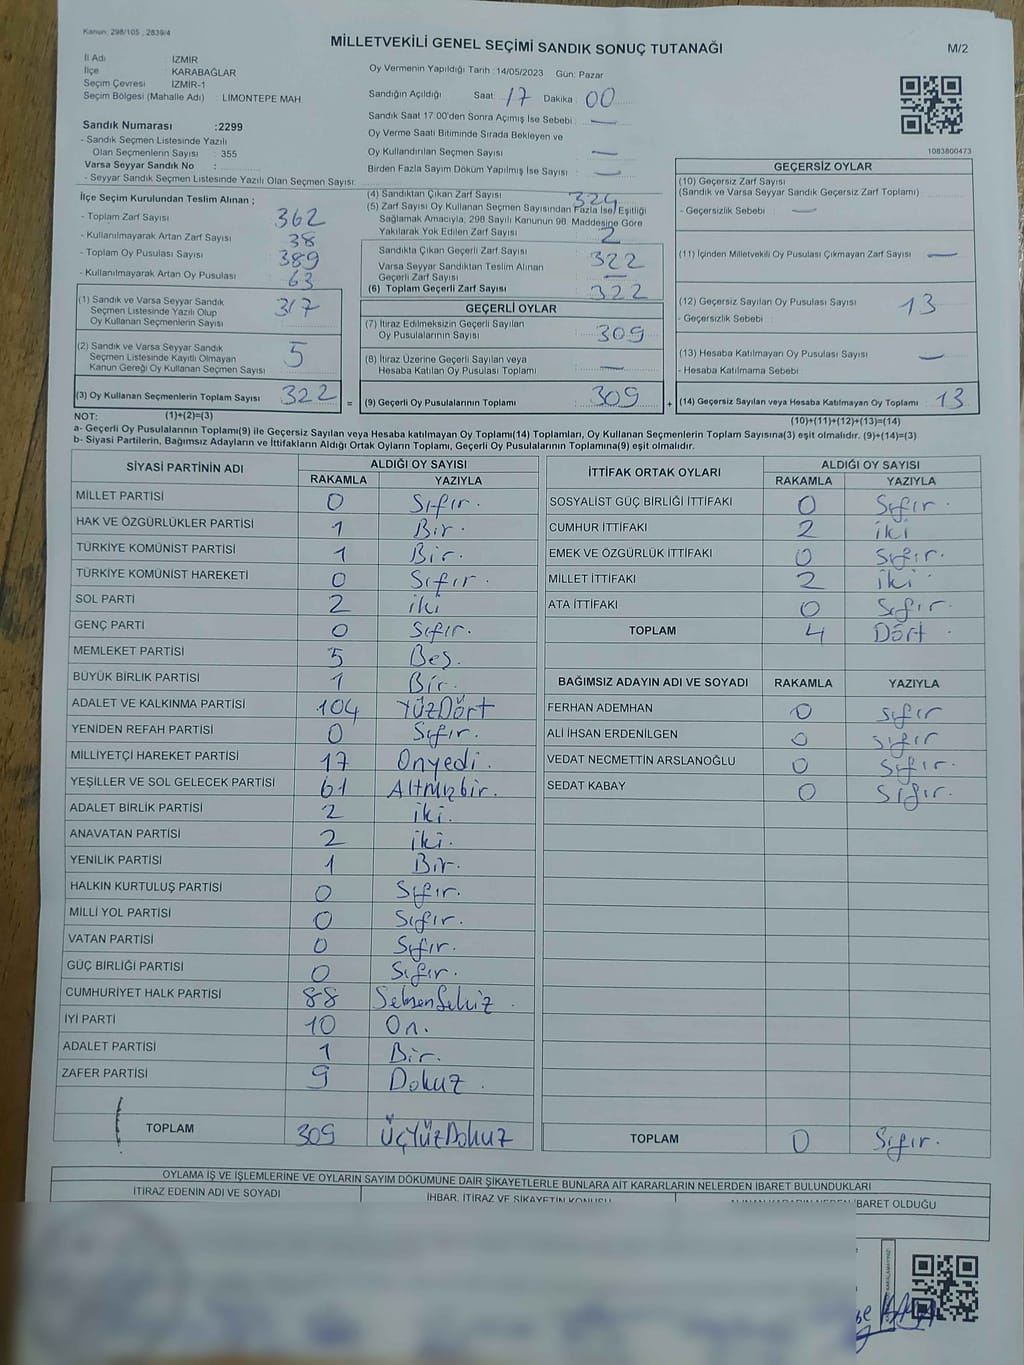 Kanun: 298/105 , 2839/4
MİLLETVEKİLİ GENEL SEÇİMİ SANDIK SONUÇ TUTANAĞI
M/2
İl Adı : İZMİR
İlçe : KARABAĞLAR
Seçim Çevresi : İZMİR-1
Seçim Bölgesi (Mahalle Adı) : LİMONTEPE MAH.
Sandık Numarası :2299
- Sandık Seçmen Listesinde Yazılı
Olan Seçmenlerin Sayısı : 355
Varsa Seyyar Sandık No :
- Seyyar Sandık Seçmen Listesinde Yazılı Olan Seçmen Sayısı:
Oy Vermenin Yapıldığı Tarih :14/05/2023 Gün: Pazar
Sandığın Açıldığı Saat: 17 Dakika : 00
Sandık Saat 17 00'den Sonra Açılmış İse Sebebi : —
Oy Verme Saati Bitiminde Sırada Bekleyen ve
Oy Kullandırılan Seçmen Sayısı : —
Birden Fazla Sayım Döküm Yapılmış İse Sayısı : —
1083800473
İlçe Seçim Kurulundan Teslim Alınan ;
- Toplam Zarf Sayısı : 362
- Kullanılmayarak Artan Zarf Sayısı : 38
- Toplam Oy Pusulası Sayısı : 389
- Kullanılmayarak Artan Oy Pusulası : 63
(1) Sandık ve Varsa Seyyar Sandık
Seçmen Listesinde Yazılı Olup
Oy Kullanan Seçmenlerin Sayısı : 317
(2) Sandık ve Varsa Seyyar Sandık
Seçmen Listesinde Kayıtlı Olmayan
Kanun Gereği Oy Kullanan Seçmen Sayısı : 5
(3) Oy Kullanan Seçmenlerin Toplam Sayısı : 322 =
(4) Sandıktan Çıkan Zarf Sayısı : 324
(5) Zarf Sayısı Oy Kullanan Seçmen Sayısından Fazla İse/ Eşitliği
Sağlamak Amacıyla, 298 Sayılı Kanunun 98. Maddesine Göre
Yakılarak Yok Edilen Zarf Sayısı : 2
Sandıkta Çıkan Geçerli Zarf Sayısı : 322
Varsa Seyyar Sandıktan Teslim Alınan
Geçerli Zarf Sayısı : —
(6) Toplam Geçerli Zarf Sayısı : 322
GEÇERLİ OYLAR
(7) İtiraz Edilmeksizin Geçerli Sayılan
Oy Pusulalarının Sayısı : 309
(8) İtiraz Üzerine Geçerli Sayılan veya
Hesaba Katılan Oy Pusulası Toplamı : —
(9) Geçerli Oy Pusulalarının Toplamı : 309 +
GEÇERSİZ OYLAR
(10) Geçersiz Zarf Sayısı
(Sandık ve Varsa Seyyar Sandık Geçersiz Zarf Toplamı) :
- Geçersizlik Sebebi : —
(11) İçinden Milletvekili Oy Pusulası Çıkmayan Zarf Sayısı : —
(12) Geçersiz Sayılan Oy Pusulası Sayısı : 13
- Geçersizlik Sebebi :
(13) Hesaba Katılmayan Oy Pusulası Sayısı : —
- Hesaba Katılmama Sebebi :
(14) Geçersiz Sayılan veya Hesaba Katılmayan Oy Toplamı : 13
NOT: (1)+(2)=(3)
(10)+(11)+(12)+(13)=(14)
a- Geçerli Oy Pusulalarının Toplamı(9) ile Geçersiz Sayılan veya Hesaba katılmayan Oy Toplamı(14) Toplamları, Oy Kullanan Seçmenlerin Toplam Sayısına(3) eşit olmalıdır. (9)+(14)=(3)
b- Siyasi Partilerin, Bağımsız Adayların ve İttifakların Aldığı Ortak Oyların Toplamı, Geçerli Oy Pusulalarının Toplamına(9) eşit olmalıdır.
SİYASİ PARTİNİN ADI ALDIĞI OY SAYISI
RAKAMLA YAZIYLA
MİLLET PARTİSİ 0 Sıfır.
HAK VE ÖZGÜRLÜKLER PARTİSİ 1 Bir.
TÜRKİYE KOMÜNİST PARTİSİ 1 Bir.
TÜRKİYE KOMÜNİST HAREKETİ 0 Sıfır.
SOL PARTİ 2 iki
GENÇ PARTİ 0 Sıfır.
MEMLEKET PARTİSİ 5 Beş.
BÜYÜK BİRLİK PARTİSİ 1 Bir.
ADALET VE KALKINMA PARTİSİ 104 YüzDört
YENİDEN REFAH PARTİSİ 0 Sıfır.
MİLLİYETÇİ HAREKET PARTİSİ 17 Onyedi.
YEŞİLLER VE SOL GELECEK PARTİSİ 61 Altmışbir.
ADALET BİRLİK PARTİSİ 2 iki.
ANAVATAN PARTİSİ 2 iki.
YENİLİK PARTİSİ 1 Bir.
HALKIN KURTULUŞ PARTİSİ 0 Sıfır.
MİLLİ YOL PARTİSİ 0 Sıfır.
VATAN PARTİSİ 0 Sıfır.
GÜÇ BİRLİĞİ PARTİSİ 0 Sıfır.
CUMHURİYET HALK PARTİSİ 88 SeksenSekiz.
İYİ PARTİ 10 On.
ADALET PARTİSİ 1 Bir.
ZAFER PARTİSİ 9 Dokuz.
TOPLAM 309 ÜçYüzDokuz
İTTİFAK ORTAK OYLARI ALDIĞI OY SAYISI
RAKAMLA YAZIYLA
SOSYALİST GÜÇ BİRLİĞİ İTTİFAKI 0 Sıfır.
CUMHUR İTTİFAKI 2 iki
EMEK VE ÖZGÜRLÜK İTTİFAKI 0 Sıfır.
MİLLET İTTİFAKI 2 iki
ATA İTTİFAKI 0 Sıfır.
TOPLAM 4 Dört.
BAĞIMSIZ ADAYIN ADI VE SOYADI RAKAMLA YAZIYLA
FERHAN ADEMHAN 0 sıfır
ALİ İHSAN ERDENİLGEN 0 sıfır
VEDAT NECMETTİN ARSLANOĞLU 0 Sıfır.
SEDAT KABAY 0 Sıfır.
TOPLAM 0 Sıfır.
OYLAMA İŞ VE İŞLEMLERİNE VE OYLARIN SAYIM DÖKÜMÜNE DAİR ŞİKAYETLERLE BUNLARA AİT KARARLARIN NELERDEN İBARET BULUNDUKLARI
İTİRAZ EDENİN ADI VE SOYADI İHBAR, İTİRAZ VE ŞİKAYETİN KONUSU ALINAN KARARIN NEDEN İBARET OLDUĞU